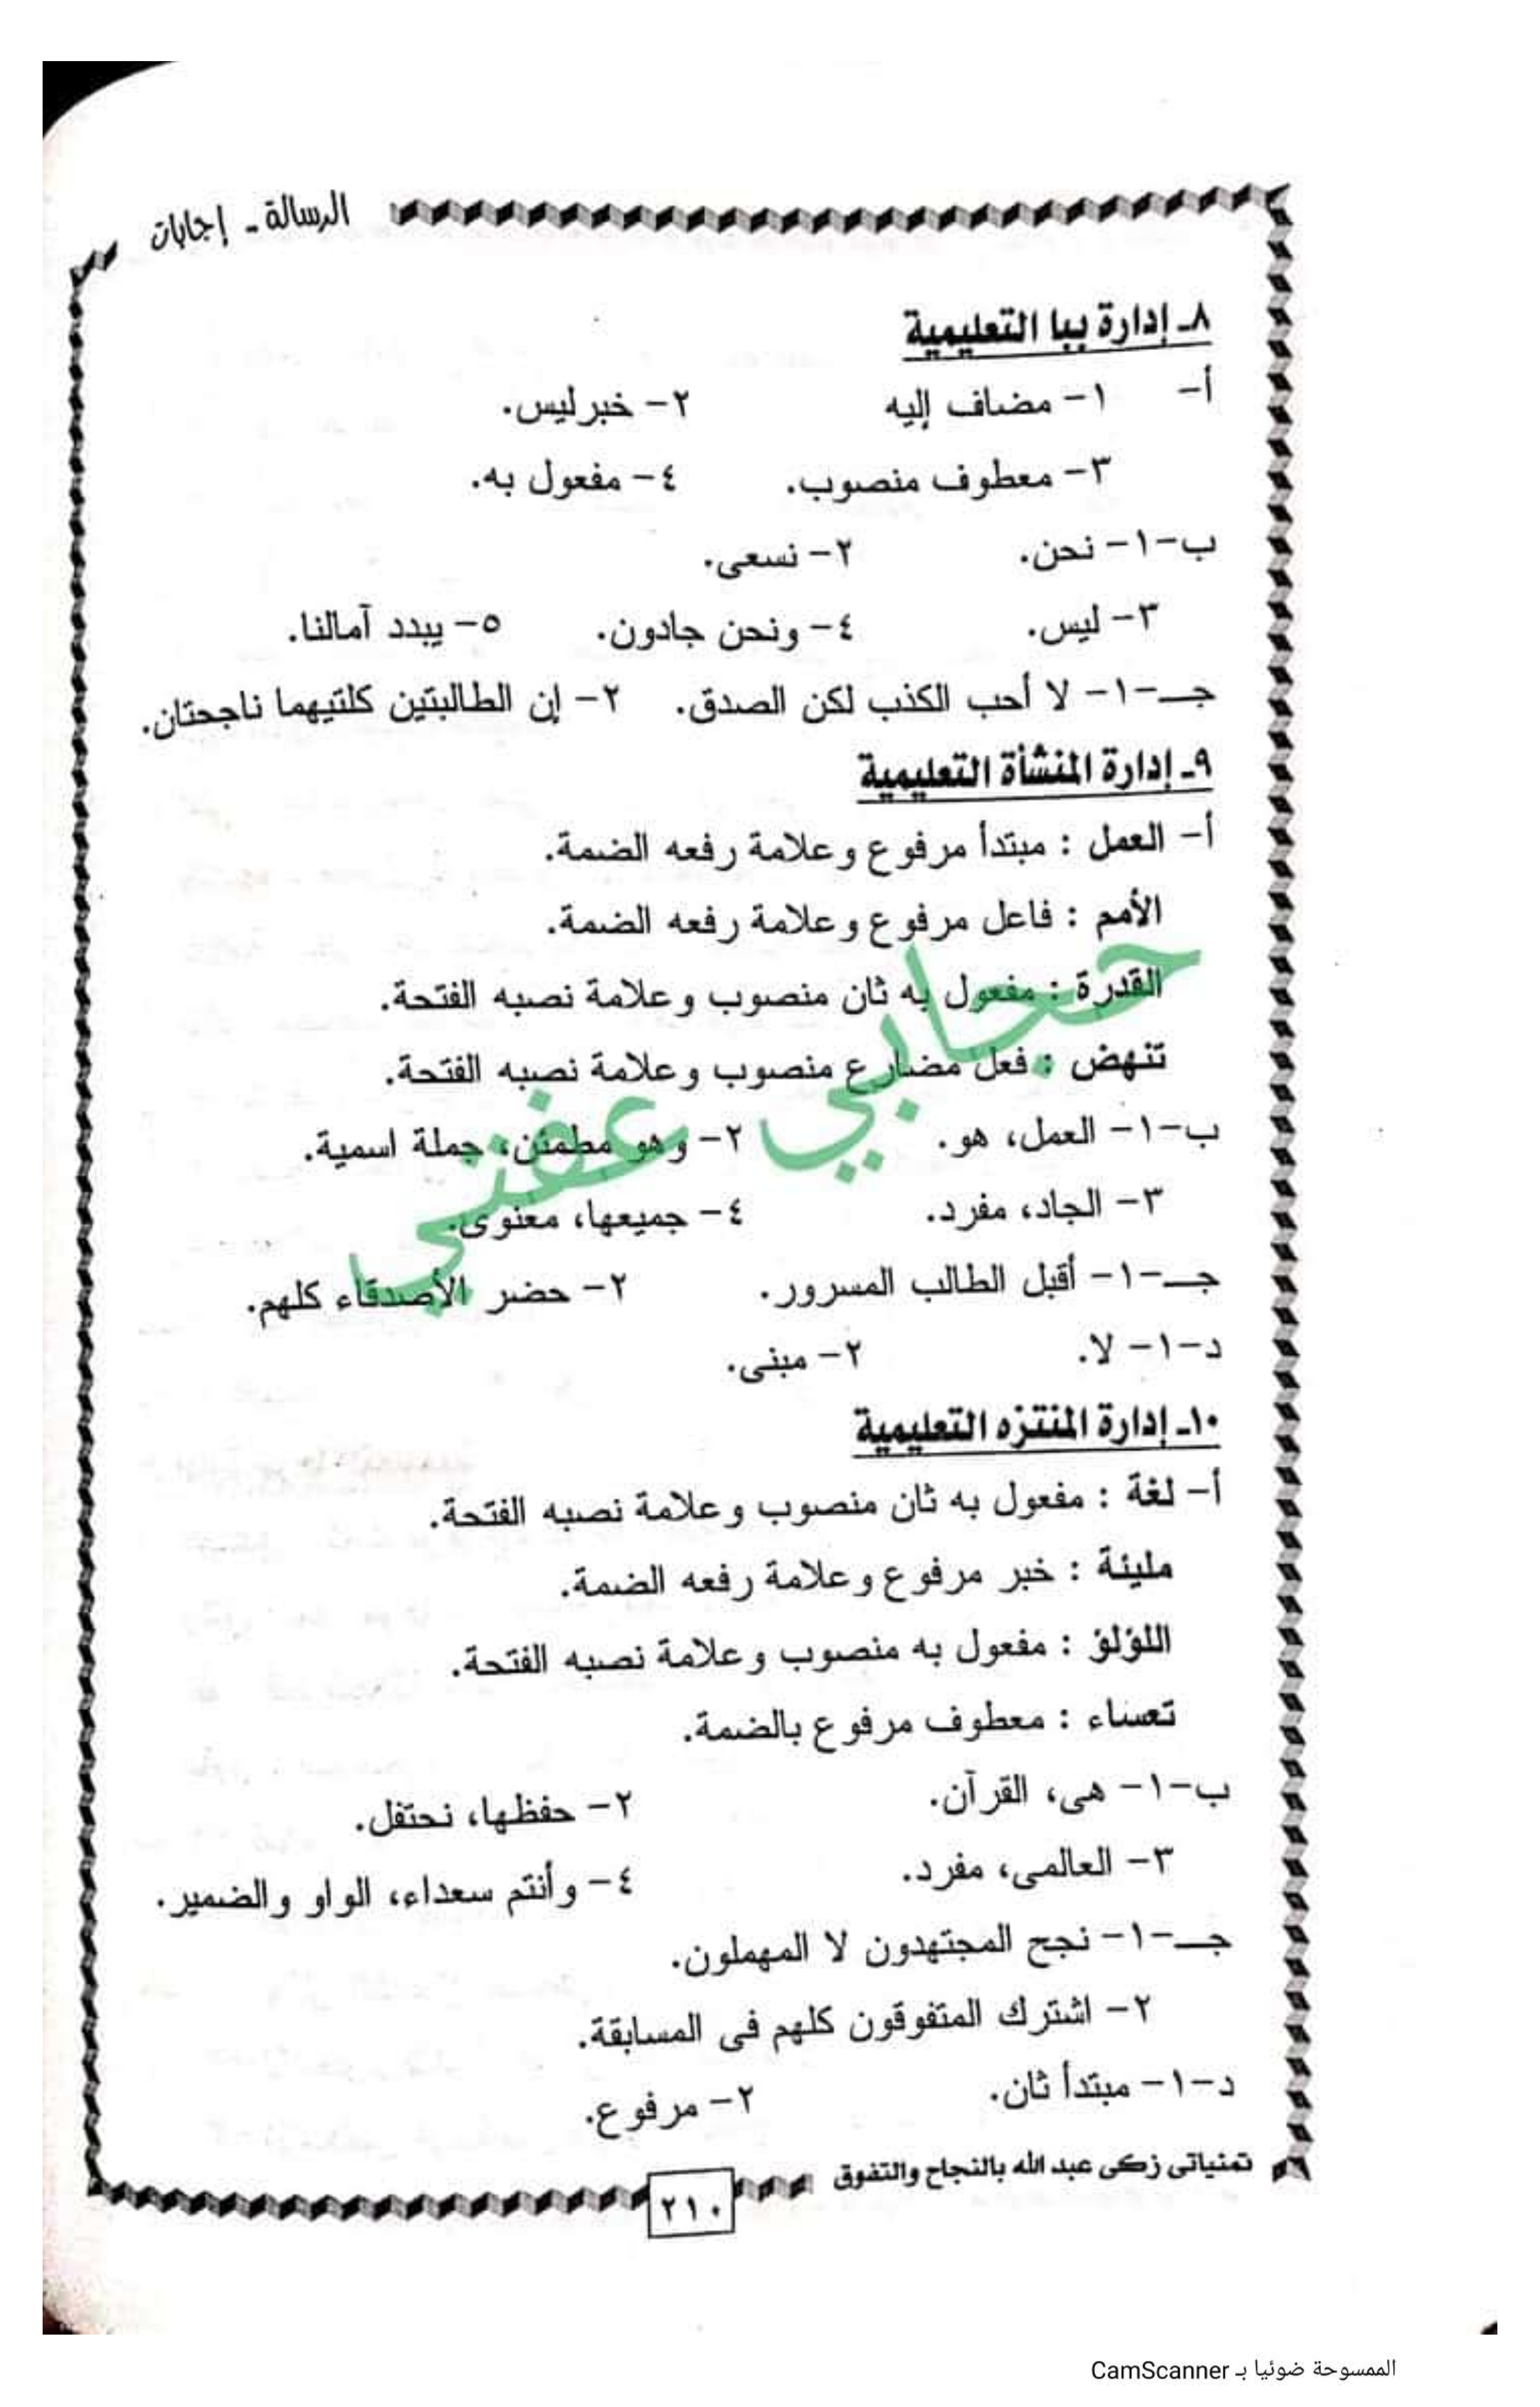 الرسالة - إجابات
٨- إدارة ببا التعليمية
أ- ١- مضاف إليه ٢- خبر ليس.
٣- معطوف منصوب. ٤- مفعول به.
ب-١- نحن. ٢- نسعى.
٣- ليس. ٤- ونحن جادون. ٥- يبدد آمالنا.
جـ-١- لا أحب الكذب لكن الصدق. ٢- إن الطالبتين كلتيهما ناجحتان.
٩- إدارة المنشأة التعليمية
أ- العمل : مبتدأ مرفوع وعلامة رفعه الضمة.
الأمم : فاعل مرفوع وعلامة رفعه الضمة.
القدرة : مفعول به ثان منصوب وعلامة نصبه الفتحة.
تنهض : فعل مضارع منصوب وعلامة نصبه الفتحة.
حجابي عفتي
ب-١- العمل، هو. ٢- وهو مطمئن، جملة اسمية.
٣- الجاد، مفرد. ٤- جميعها، معنوى.
جـ-١- أقبل الطالب المسرور. ٢- حضر الأصدقاء كلهم.
د-١- لا. ٢- مبنى.
١٠- إدارة المنتزه التعليمية
أ- لغة : مفعول به ثان منصوب وعلامة نصبه الفتحة.
مليئة : خبر مرفوع وعلامة رفعه الضمة.
اللؤلؤ : مفعول به منصوب وعلامة نصبه الفتحة.
تعساء : معطوف مرفوع بالضمة.
ب-١- هى، القرآن. ٢- حفظها، نحتفل.
٣- العالمى، مفرد. ٤- وأنتم سعداء، الواو والضمير.
جـ-١- نجح المجتهدون لا المهملون.
٢- اشترك المتفوقون كلهم فى المسابقة.
د-١- مبتدأ ثان. ٢- مرفوع.
تمنياتى زكى عبد الله بالنجاح والتفوق
٢١٠
الممسوحة ضوئيا بـ CamScanner